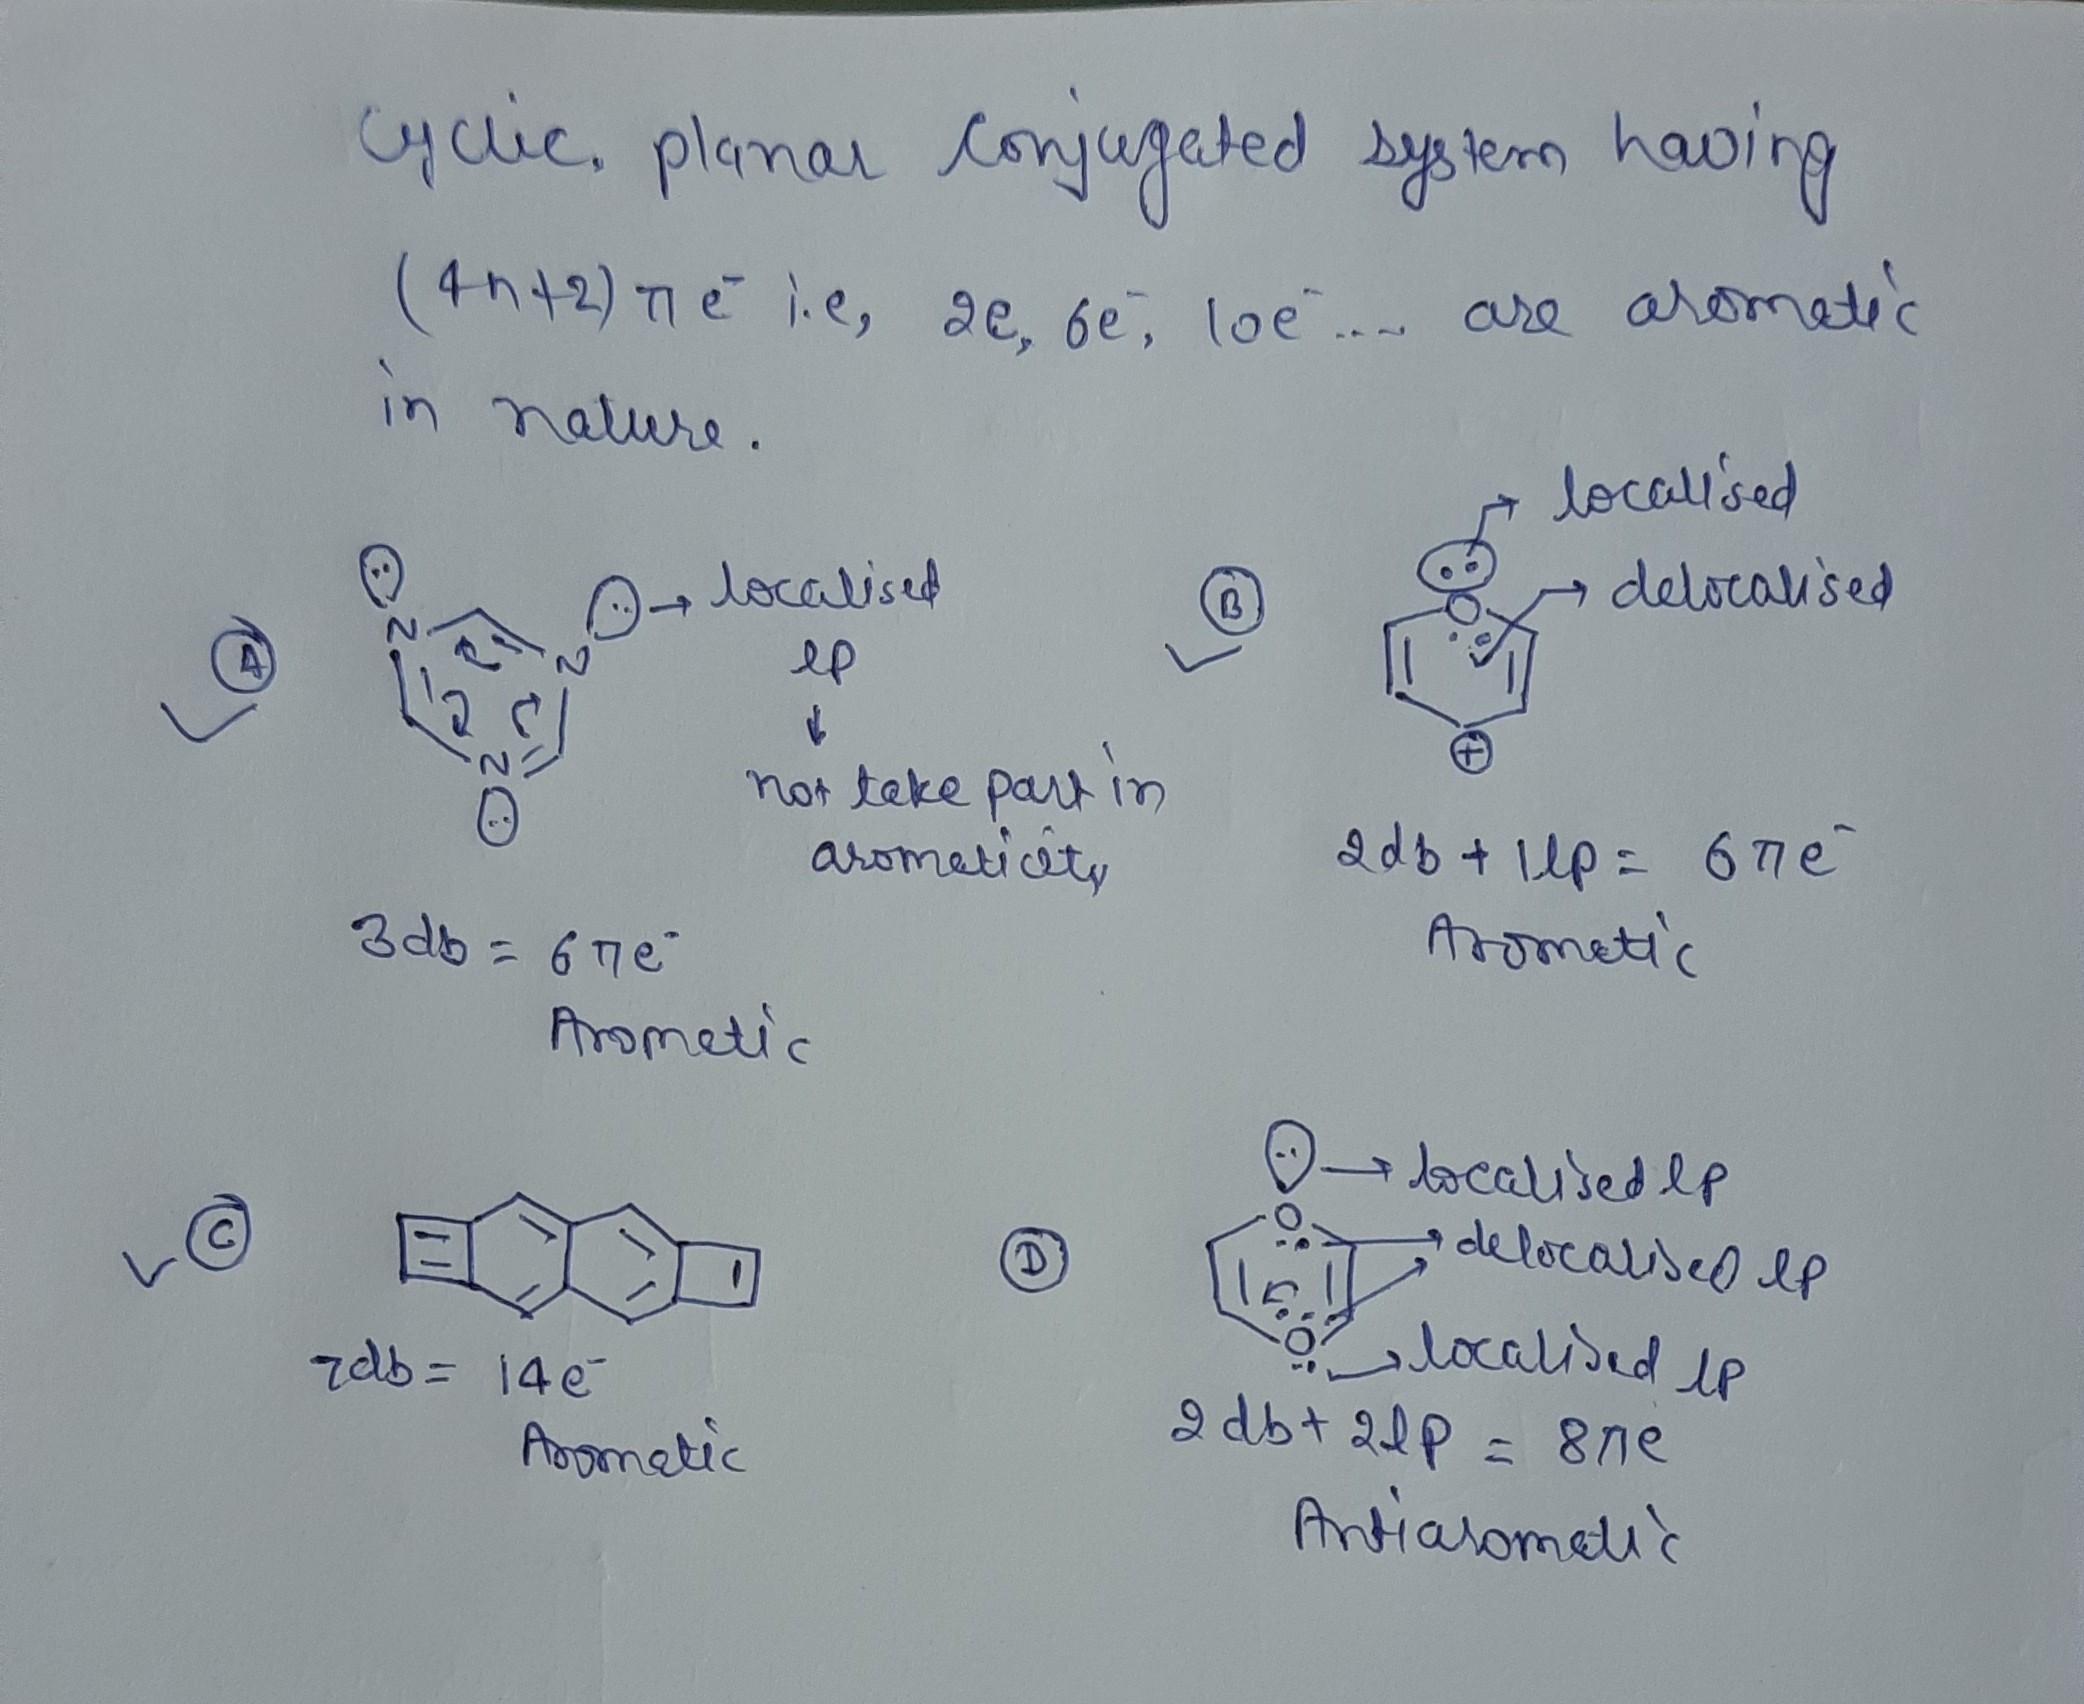 Cyclic, planar conjugated system having
(4n+2) π e⁻ i.e, 2e, 6e⁻, 10e⁻ .... are aromatic
in nature.
A
N
N
N
→ localised
lp
↓
not take part in
aromaticity
3db = 6πe⁻
Aromatic
B
→ localised
→ delocalised
O
+
2db + 1lp = 6πe⁻
Aromatic
C
7db = 14e⁻
Aromatic
D
→ localised lp
O
→ delocalised lp
O
→ localised lp
2db + 2lp = 8πe
Antiaromatic